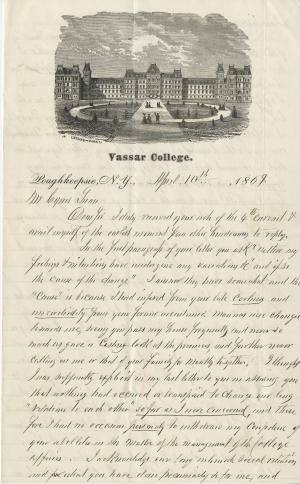 Vassar College.
Poughkeepsie, N.Y. April 10th 1867
Mr Cyrus Swan
I duly received your note of the 4th current &
avail myself of the earliest moment from other to reply.
In the first paragraph of your letter you ask "whether my
feelings & intentions have undergone any & if so
the cause of the change" I answer they have somewhat and the
"Cause" is because I had inferred from your late Cooling and
from your former manners nice changed
towards me, seeing you pass my house frequently and never so
much as gave a look at the premises and further never
calling on me or that of your family for months together, I thought
I was sufficiently explicit in my last letter to you in assuring you
that nothing had occurred or transpired to change our long
relations to each other so far as I was concerned, and therefore
for I had no occasion previously to withdraw my confidence of
your abilities in the matter of the management of the College
affairs. I acknowledge our long intimate social relation
and for what you have done to & for me, and